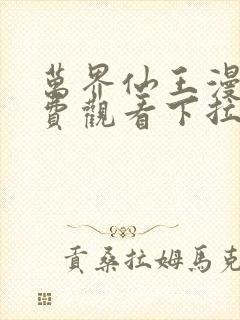 萬界仙王漫
費觀看下拉
貢桑拉姆馬克